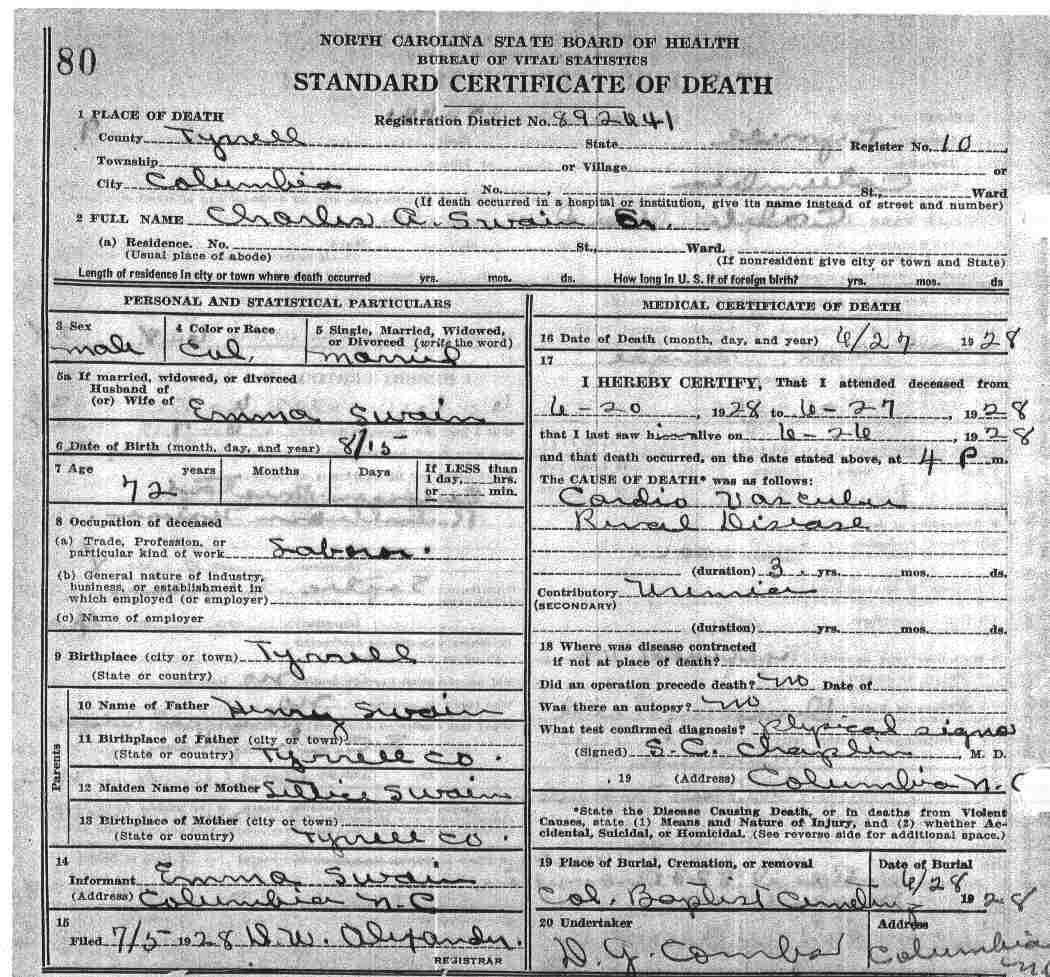 80
NORTH CAROLINA STATE BOARD OF HEALTH
BUREAU OF VITAL STATISTICS
STANDARD CERTIFICATE OF DEATH
1 PLACE OF DEATH
Registration District No. 892641
County Tyrrell State Register No. 10
Township or Village or
City Columbia No. , St., Ward
(If death occurred in a hospital or institution, give its name instead of street and number)
2 FULL NAME Charles A. Swain Sr.
(a) Residence. No. St., Ward.
(Usual place of abode) (If nonresident give city or town and State)
Length of residence in city or town where death occurred yrs. mos. ds. How long in U. S. if of foreign birth? yrs. mos. ds
PERSONAL AND STATISTICAL PARTICULARS
3 Sex
male
4 Color or Race
Col.
5 Single, Married, Widowed,
or Divorced (write the word)
married
5a If married, widowed, or divorced
Husband of
(or) Wife of Emma Swain
6 Date of Birth (month, day, and year) 8/15
7 Age years Months Days If LESS than
1 day, hrs.
or min.
72
8 Occupation of deceased
(a) Trade, Profession, or
particular kind of work Laborer.
(b) General nature of industry,
business, or establishment in
which employed (or employer)
(c) Name of employer
9 Birthplace (city or town) Tyrrell
(State or country)
Parents
10 Name of Father Henry Swain
11 Birthplace of Father (city or town)
(State or country) Tyrrell co.
12 Maiden Name of Mother Swain
13 Birthplace of Mother (city or town)
(State or country) Tyrrell co.
14
Informant Emma Swain
(Address) Columbia N.C
15
Filed 7/5 1928 D.W. Alexander.
REGISTRAR
MEDICAL CERTIFICATE OF DEATH
16 Date of Death (month, day, and year) 6/27 1928
17
I HEREBY CERTIFY, That I attended deceased from
6-20, 1928 to 6-27, 1928
that I last saw him alive on 6-26, 1928
and that death occurred, on the date stated above, at 4 P m.
The CAUSE OF DEATH* was as follows:
Cardio Vascular
Renal Disease
(duration) 3 yrs. mos. ds.
Contributory Uremia
(SECONDARY)
(duration) yrs. mos. ds.
18 Where was disease contracted
if not at place of death?
Did an operation precede death? no Date of
Was there an autopsy? no
What test confirmed diagnosis? physical signs
(Signed) S.C. Chaplin, M. D.
, 19 (Address) Columbia N.C
*State the Disease Causing Death, or in deaths from Violent
Causes, state (1) Means and Nature of Injury, and (2) whether Ac-
cidental, Suicidal, or Homicidal. (See reverse side for additional space.)
19 Place of Burial, Cremation, or removal
Col. Baptist Cemetery
Date of Burial
6/28
1928
20 Undertaker
D. G. Combs
Address
Columbia
N.C